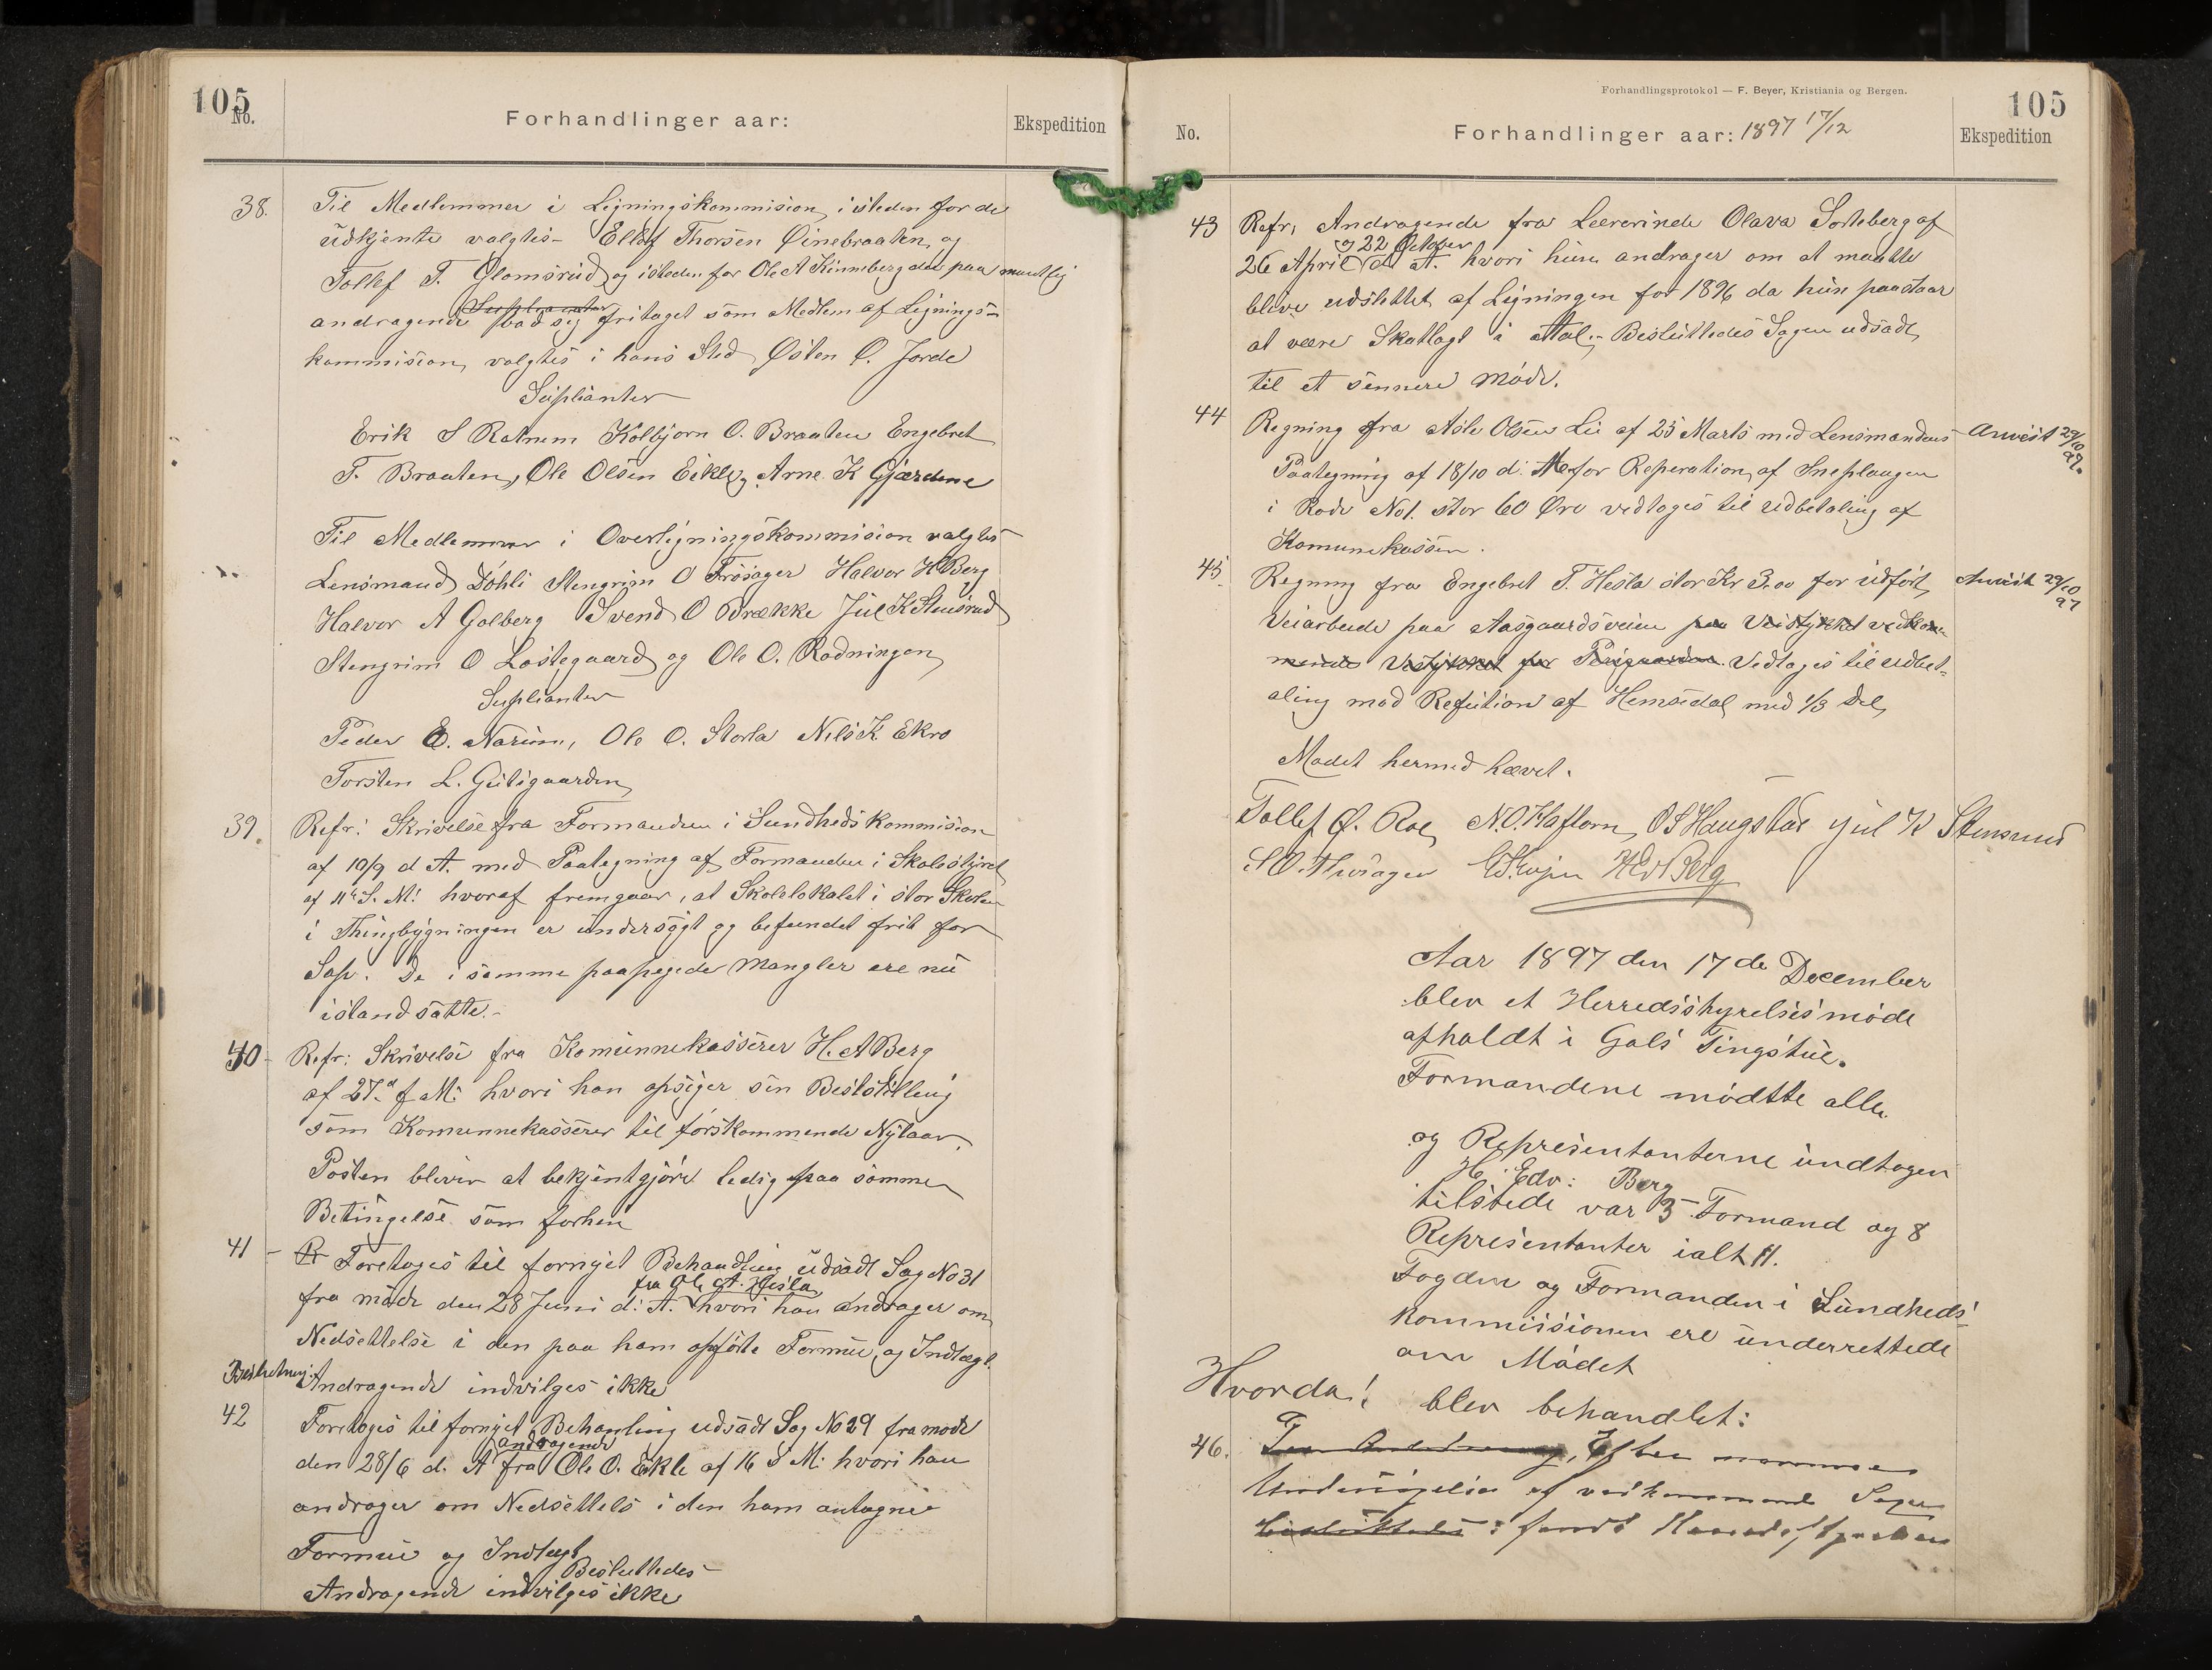 105
No.
Forhandlinger aar:
Ekspedition
38. Til Medlemmer i Ligningskommision, isteden for de
udkjente valgtes - Ellef Thorsen Øinebraaten, og
Tollef T. Glomsrud, og isteden for Ole A Kinneberg der paa muntlig
andragende bad sig fritaget som Medlem af Lignings-
kommision, valgtes i hans Sted Østen O. Jorde
Suplianter
Erik S Rotnem Kolbjørn O. Braaten Engebret
T. Braaten, Ole Olsen Eikle, Arne K Gjærdene
Til Medlemmer i Overligningskommision valgtes
Lensmand Døhli Stengrim O Trøsager Halvor H Berg
Halvor A Golberg Svend O Brække Jul K Stensrud
Stengrim O Løstegaard og Ole O. Rodningen
Suplianter
Peder E. Narum, Ole O. Storla Nils K. Ekro
Torsten L. Gutigaarden
39. Refr: Skrivelse fra Formanden i Sundhedskommision
af 10/9 d A. med Paategning af Formanden i Skolestyret
af 11te S. M: hvoraf fremgaar, at Skolelokalet i stor Skolen
i Thingbygningen er undersøgt og befundet frit for
Sop. De i samme paapegede Mangler ere nu
istandsatte.-
40- Refr: Skrivelse fra Komunnekasserer H. A Berg
af 27. f M: hvori han opsiger sin Bestilling
som Komunnekasserer til førstkommende Nytaar.
Posten bliver at bekjentgjøre ledig paa samme
Betingelse som forhen
41 - Foretoges til fornyet Behandling udsadt Sag No 31
fra Ole A. Hesla
fra møde den 28 Juni d: A. hvori han andrager om
Nedsettelse i den paa ham opførte Formue og Indtægt.
Beslutning: Andragende indvilges ikke
42 Foretoges til fornyet Behanling udsadt Sag No 29 fra mode
andragende
den 28/6 d. A fra Ole O. Eikle af 16 S M: hvori han
andrager om Nedsettels i den ham antagne
Formue og Indtægt
Besluttedes
Andragende indvilges ikke
Forhandlingsprotokol — F. Beyer, Kristiania og Bergen.
105
No.
Forhandlinger aar: 1897 17/12
Ekspedition
43 Refr, Andragende fra Leererinde Olava Sorteberg af
og 22 October
26 April d A. hvori hun andrager om at maatte
blive udslettet af Ligningen for 1896 da hun paastaar
at veere Skatlagt i Aal.- Besluttedes Sagen udsadt
til et sennere Møde.
44 Regning fra Asle Olsen Lie af 23 Marts med Lensmandens Anvist 29/10 97.
Paategning af 18/10 d: A for Reperation af Sneplougen
i Rode No 1. stor 60 Øre vedtoges til udbetaling af
Komunekassen.
45. Regning fra Engebret T. Hesla stor Kr 3.00 for udført Anvist 29/10 97
Veiarbeide paa Aasgaardsveien paa Veistykket vedkom-
mende Veistykket for Vedtoges til udbet-
aling mod Refution af Hemsedal med 1/3 Del,
Mødet hermed hævet.
Tollef Ø. Roe, N.O. Haftorn, O S Haugstad Jul K Stensrud
S O. Thrøsager H Edv Berg
Aar 1897 den 17de December
blev et Herredsstyrelsesmøde
afholdt i Gols Tingstue.
Formandene mødtte alle.
og Representanterne undtagen
H. Edv: Berg
tilstede var 3 Formand og 8
Representanter ialt 11.
Fogden og Formanden i Sundheds-
kommissionen ere underrettede
om Mødet
Hvorda! blev behandlet:
46. Efter nærmere
Undersøgelse af vedkommende Sager
Besluttedes: fandt